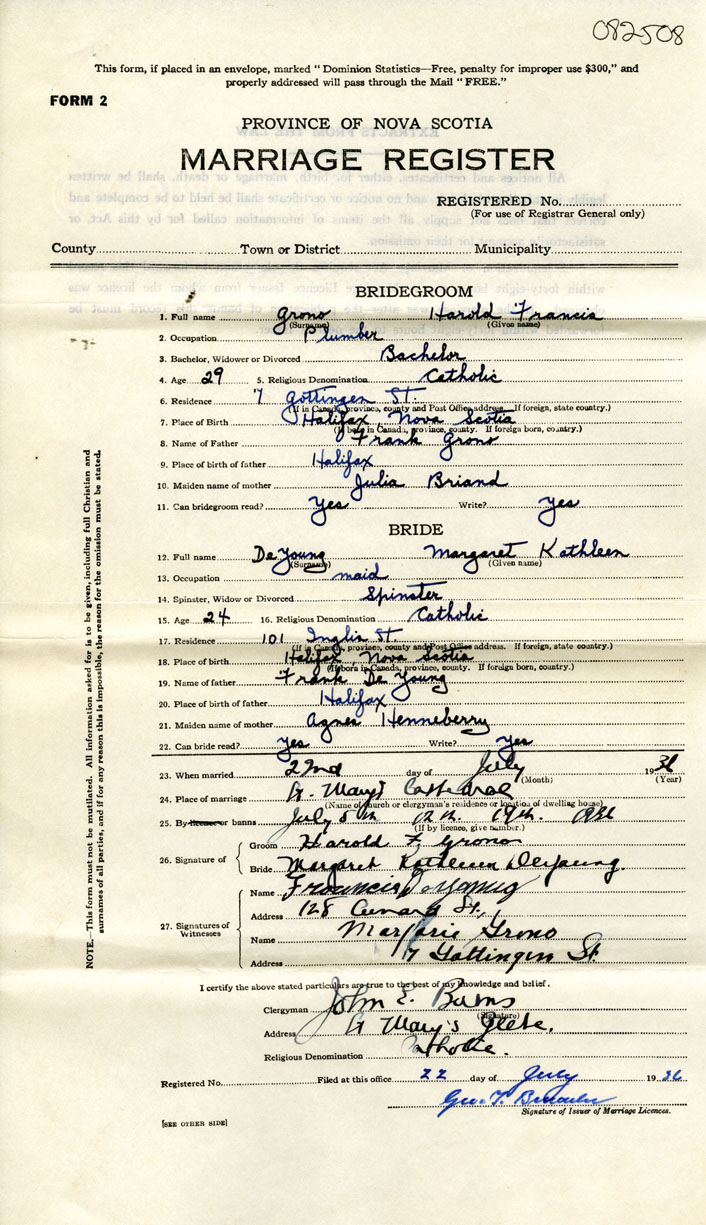 082508
This form, if placed in an envelope, marked "Dominion Statistics—Free, penalty for improper use $300," and
properly addressed will pass through the Mail "FREE."
FORM 2
PROVINCE OF NOVA SCOTIA
MARRIAGE REGISTER
REGISTERED No.
(For use of Registrar General only)
County Town or District Municipality
BRIDEGROOM
1. Full name Grono Harold Francis
(Surname) (Given name)
2. Occupation Plumber
3. Bachelor, Widower or Divorced Bachelor
4. Age 29 5. Religious Denomination Catholic
6. Residence 7 Gottingen St.
(If in Canada, province, county and Post Office address. If foreign, state country.)
7. Place of Birth Halifax, Nova Scotia
(If born in Canada, province, county. If foreign born, country.)
8. Name of Father Frank Grono
9. Place of birth of father Halifax
10. Maiden name of mother Julia Briand
11. Can bridegroom read? Yes Write? Yes
BRIDE
12. Full name De Young Margaret Kathleen
(Surname) (Given name)
13. Occupation maid
14. Spinster, Widow or Divorced Spinster
15. Age 24 16. Religious Denomination Catholic
17. Residence 101 Inglis St.
(If in Canada, province, county and Post Office address. If foreign, state country.)
18. Place of birth Halifax, Nova Scotia
(If born in Canada, province, county. If foreign born, country.)
19. Name of father Frank De Young
20. Place of birth of father Halifax
21. Maiden name of mother Agnes Henneberry
22. Can bride read? Yes Write? Yes
23. When married 22nd day of July 1936
(Month) (Year)
24. Place of marriage St. Mary's Cathedral
(Name of church or clergyman's residence or location of dwelling house)
25. By license or banns July 5th 12th. 19th. 1936
(If by licence, give number.)
26. Signature of
Groom Harold F. Grono
Bride Margaret Kathleen DeYoung.
27. Signatures of Witnesses
Name Francis DeYoung
Address 128 Cunard St.,
Name Marjorie Grono
Address 7 Gottingen St.
I certify the above stated particulars are true to the best of my knowledge and belief.
Clergyman John E. Burns
(Signature)
Address St Mary's Glebe.
Religious Denomination Catholic.
Registered No. Filed at this office 22 day of July 1936
Geo. T.
Signature of Issuer of Marriage Licences.
[SEE OTHER SIDE]
NOTE.—This form must not be mutilated. All information asked for is to be given, including full Christian and
surnames of all parties, and if for any reason this is impossible, the reason for the omission must be stated.